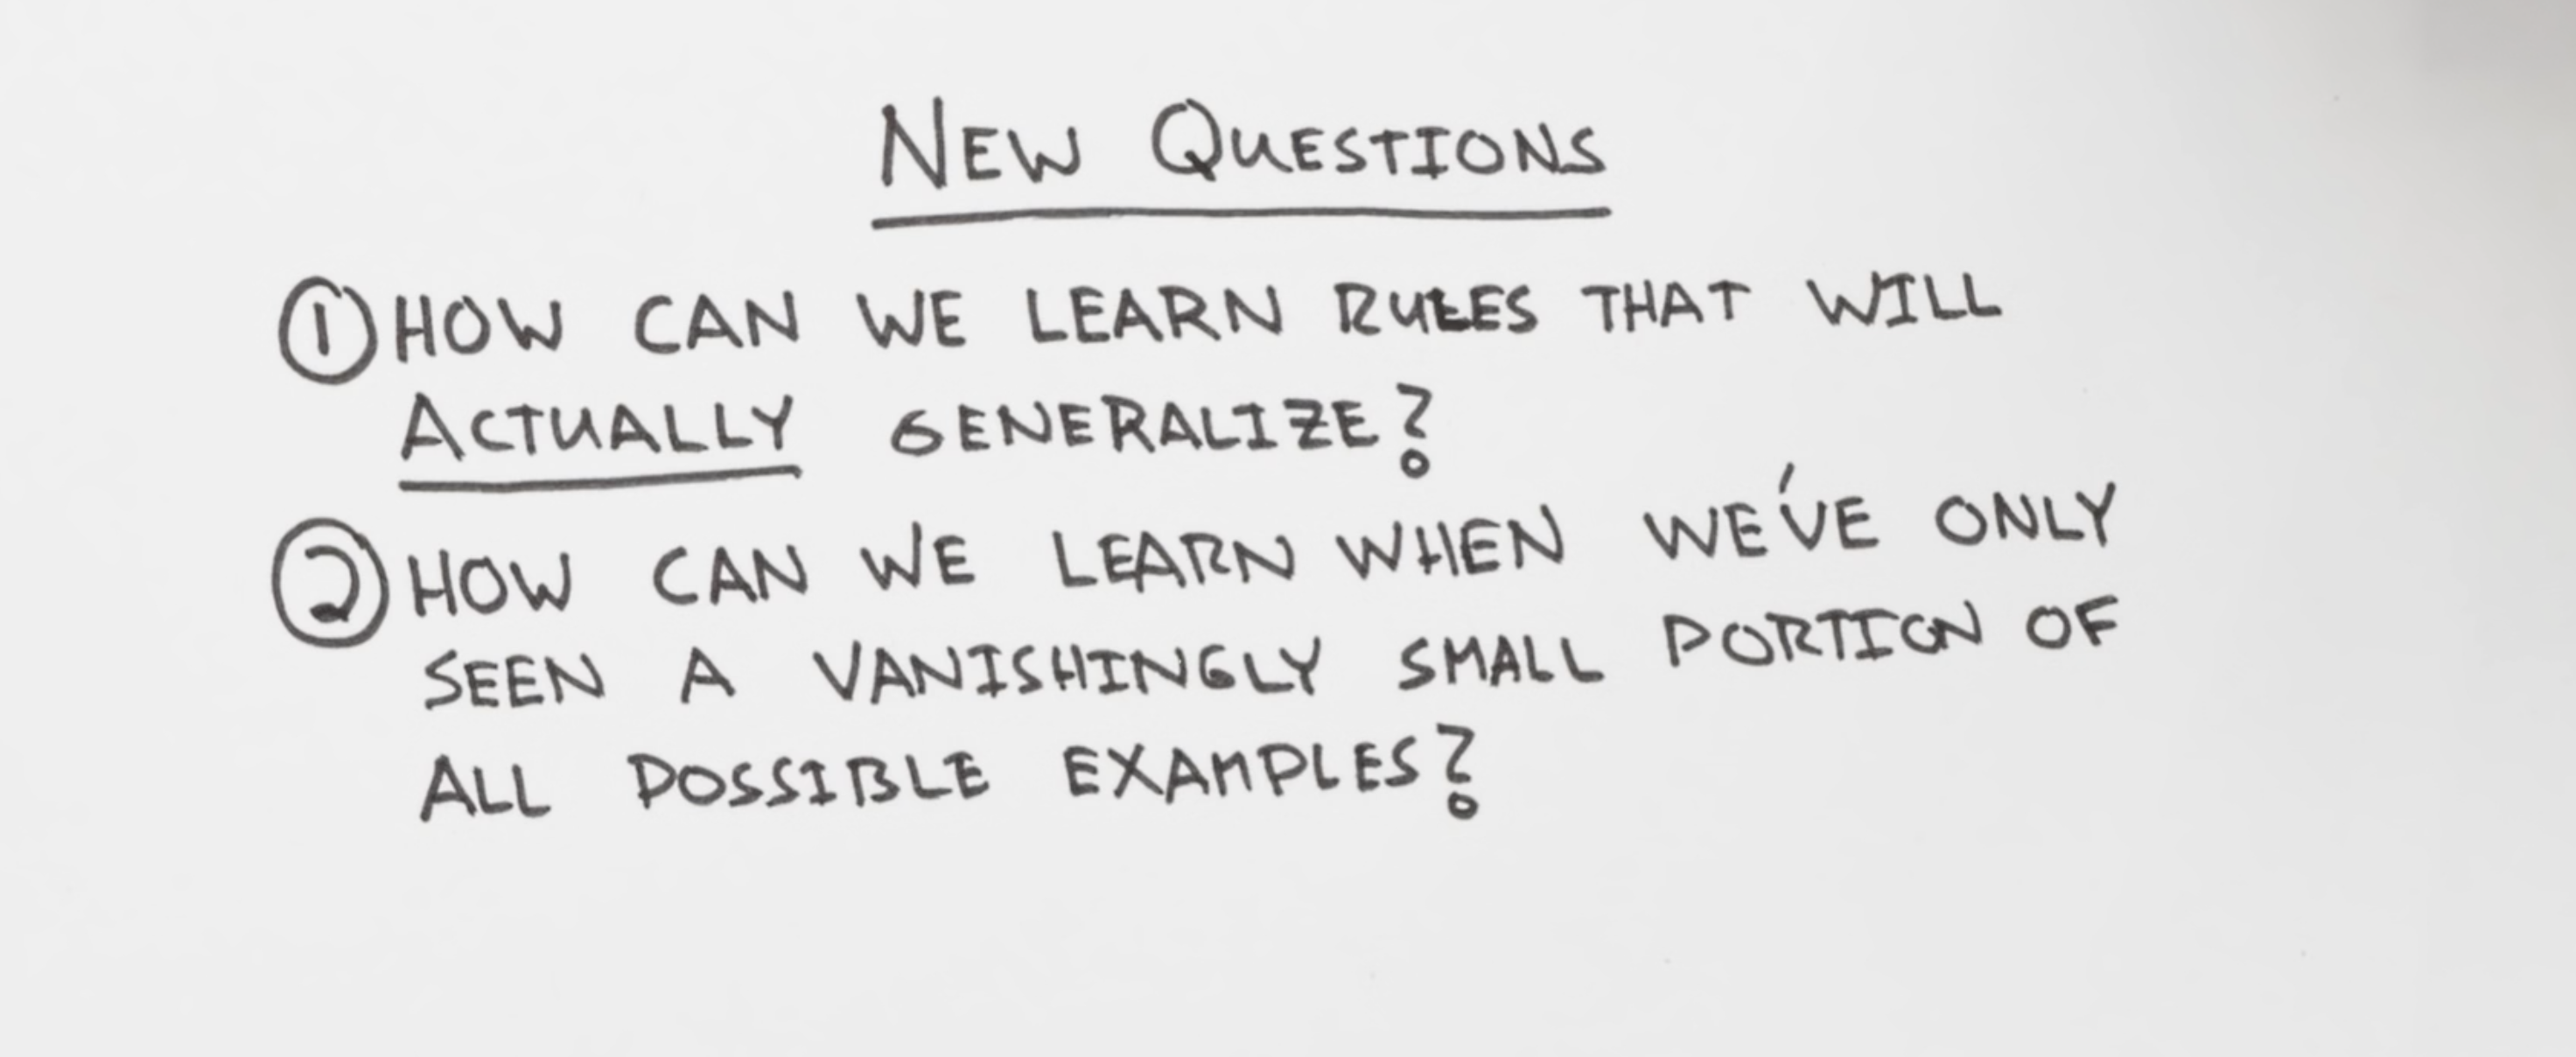 NEW QUESTIONS
① HOW CAN WE LEARN RULES THAT WILL
ACTUALLY GENERALIZE?
② HOW CAN WE LEARN WHEN WE'VE ONLY
SEEN A VANISHINGLY SMALL PORTION OF
ALL POSSIBLE EXAMPLES?